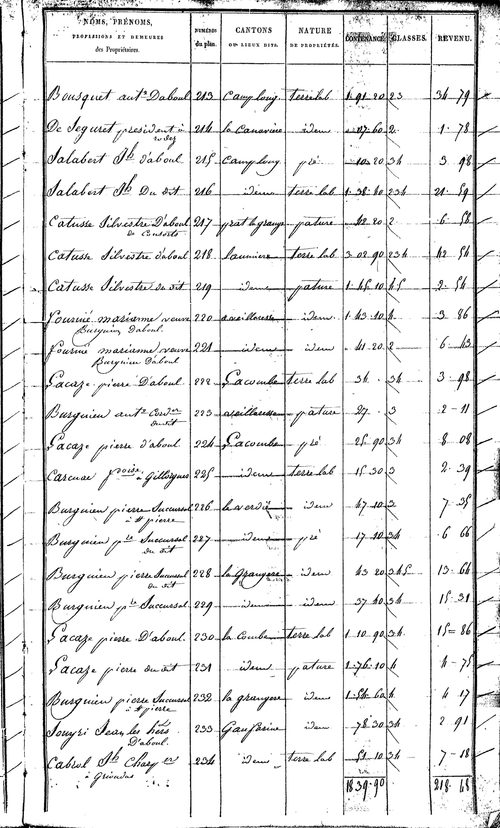 NOMS, PRÉNOMS, PROFESSIONS ET DEMEURES des Propriétaires. NUMÉROS du plan. CANTONS OU LIEUX DITS. NATURE DE PROPRIÉTÉS. CONTENANCE. CLASSES. REVENU.
Bousquet ant.e Daboul 213 Camplong terre lab 1. 91 20 23 34 79
De Seguret president à rodez 214 la Canavine idem 07 60 2 1. 78
Salabert Jh d'aboul 215 Camplong pré 10. 20 34 3 98
Salabert Jh Du dit 216 idem terre lab 1. 38. 40 234 21. 59
Catusse Silvestre D'aboul 217 prat le grange pature 42. 20 2 6. 58
Catusse Silvestre d'aboul 218 Launiere terre lab 3. 02. 90 234 42 54
Catusse Silvestre du dit 219 idem pature 1. 45. 10 45 2. 54
fournié marianne veuve 220 idem 1. 43. 10 4. 3 86
Burguiere D'aboul
fournié marianne veuve 221 idem idem 41. 20 2 6 43
Burguiere D'aboul
Lacaze pierre D'aboul 222 Lacombe terre lab 34. 34 3. 98
Burguiere ant.e 223 pature 27. 3 2. 11
du dit
Lacaze pierre d'aboul 224 Lacombe pré 25. 90 34 8 08
à Gillorgues 225 idem terre lab 15. 30 3 2. 39
Burguiere pierre Succursal 226 la verdie idem 47. 10 3 7. 35
à st pierre
Burguiere p.re Succursal 227 idem pré 17. 10 34 6 66
du dit
Burguiere pierre Succursal 228 la Grangere idem 43 20 345 13. 64
du dit
Burguiere p.re Succursal 229 idem idem 37 40 34 15. 31
Lacaze pierre D'aboul. 230 la Combe terre lab 1. 10. 90 34. 15= 86
Lacaze pierre du dit 231 idem pature 1. 76. 10 4 4. 75
Burguiere pierre Succursal 232 la grangere idem 1. 54. 60 4 4 17
à st pierre
Jouyri Jean les hérs 233 idem 78 30 34 2 91
D'aboul.
Cabrol Jh 234 idem terre lab 51. 10 34 7. 18
18 39. 90 218. 68